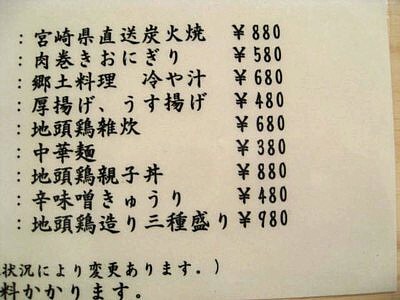 ：宮崎県直送炭火焼 ￥880
：肉巻きおにぎり ￥580
：郷土料理 冷や汁 ￥680
：厚揚げ、うす揚げ ￥480
：地頭鶏雑炊 ￥680
：中華麺 ￥380
：地頭鶏親子丼 ￥880
：辛味噌きゅうり ￥480
：地頭鶏造り三種盛り ￥980
状況により変更あります。)
料かかります。